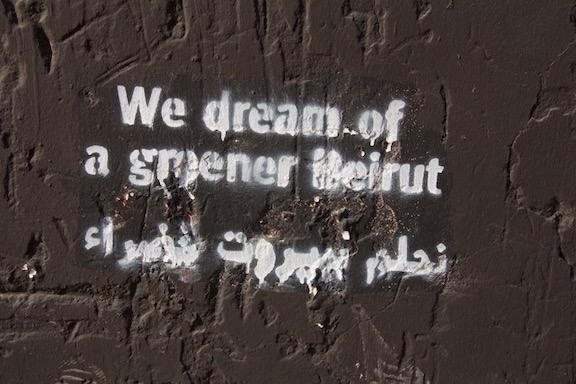 We dream of
a greener Beirut
نحلم ببيروت خضراء